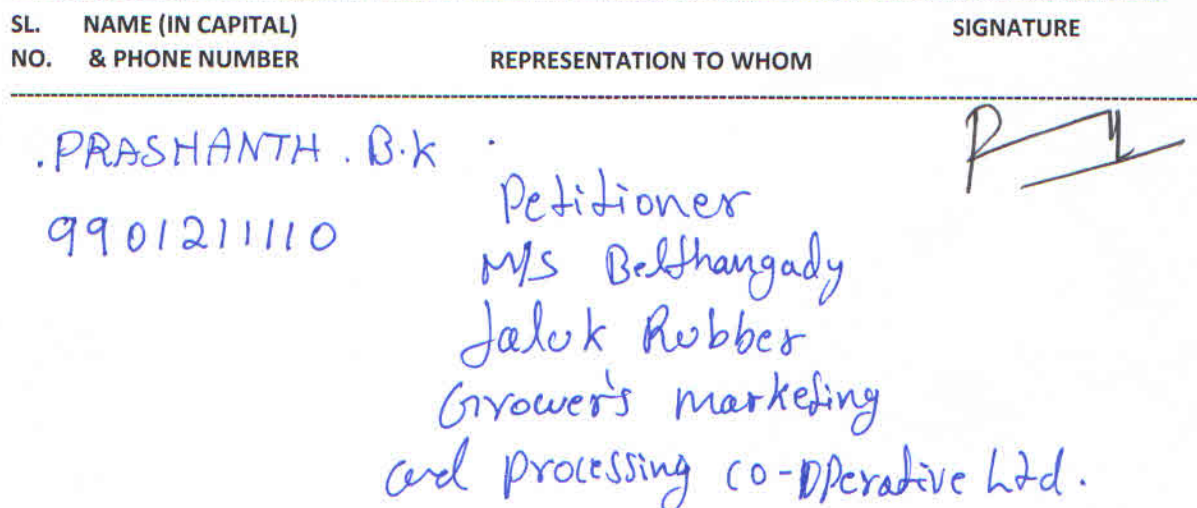 SL. NAME (IN CAPITAL) SIGNATURE
NO. & PHONE NUMBER REPRESENTATION TO WHOM
.PRASHANTH . B.K .
9901211110
Petitioner
M/S Belthangady
Taluk Rubber
Grower's marketing
and processing co-operative Ltd.